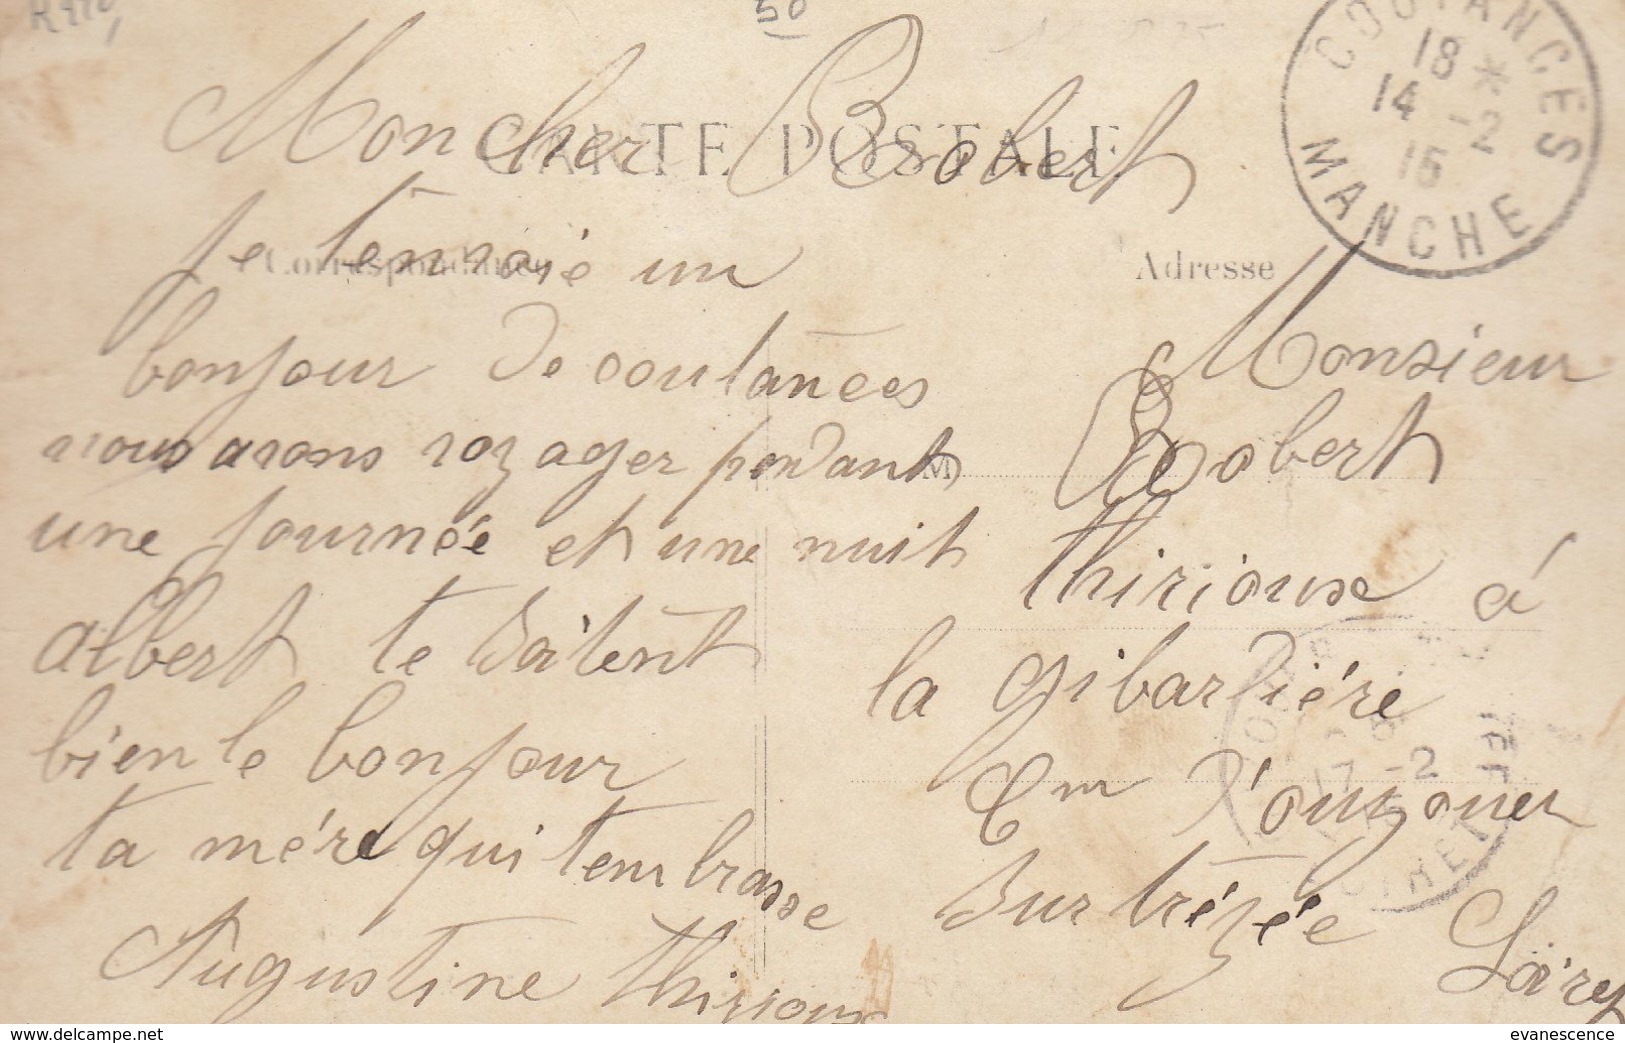 50
COUTANCES
18 *
14 -2
15
MANCHE
CARTE POSTALE
Mon cher Robert
Correspondance
Adresse
je tenvoie un
bonjour de coutànces
nous avons voyager pendant
une journée et une nuit
albert te Souàtent
bien le bonjour
ta mére qui tembrasse
Augustine thirioux
M
Monsieur
Robert
thirioux à
la gibardiére
Cm d'ouzouer
Sur trézée
Loiret
17 -2
LOIRET
delcampe.net
evanescence